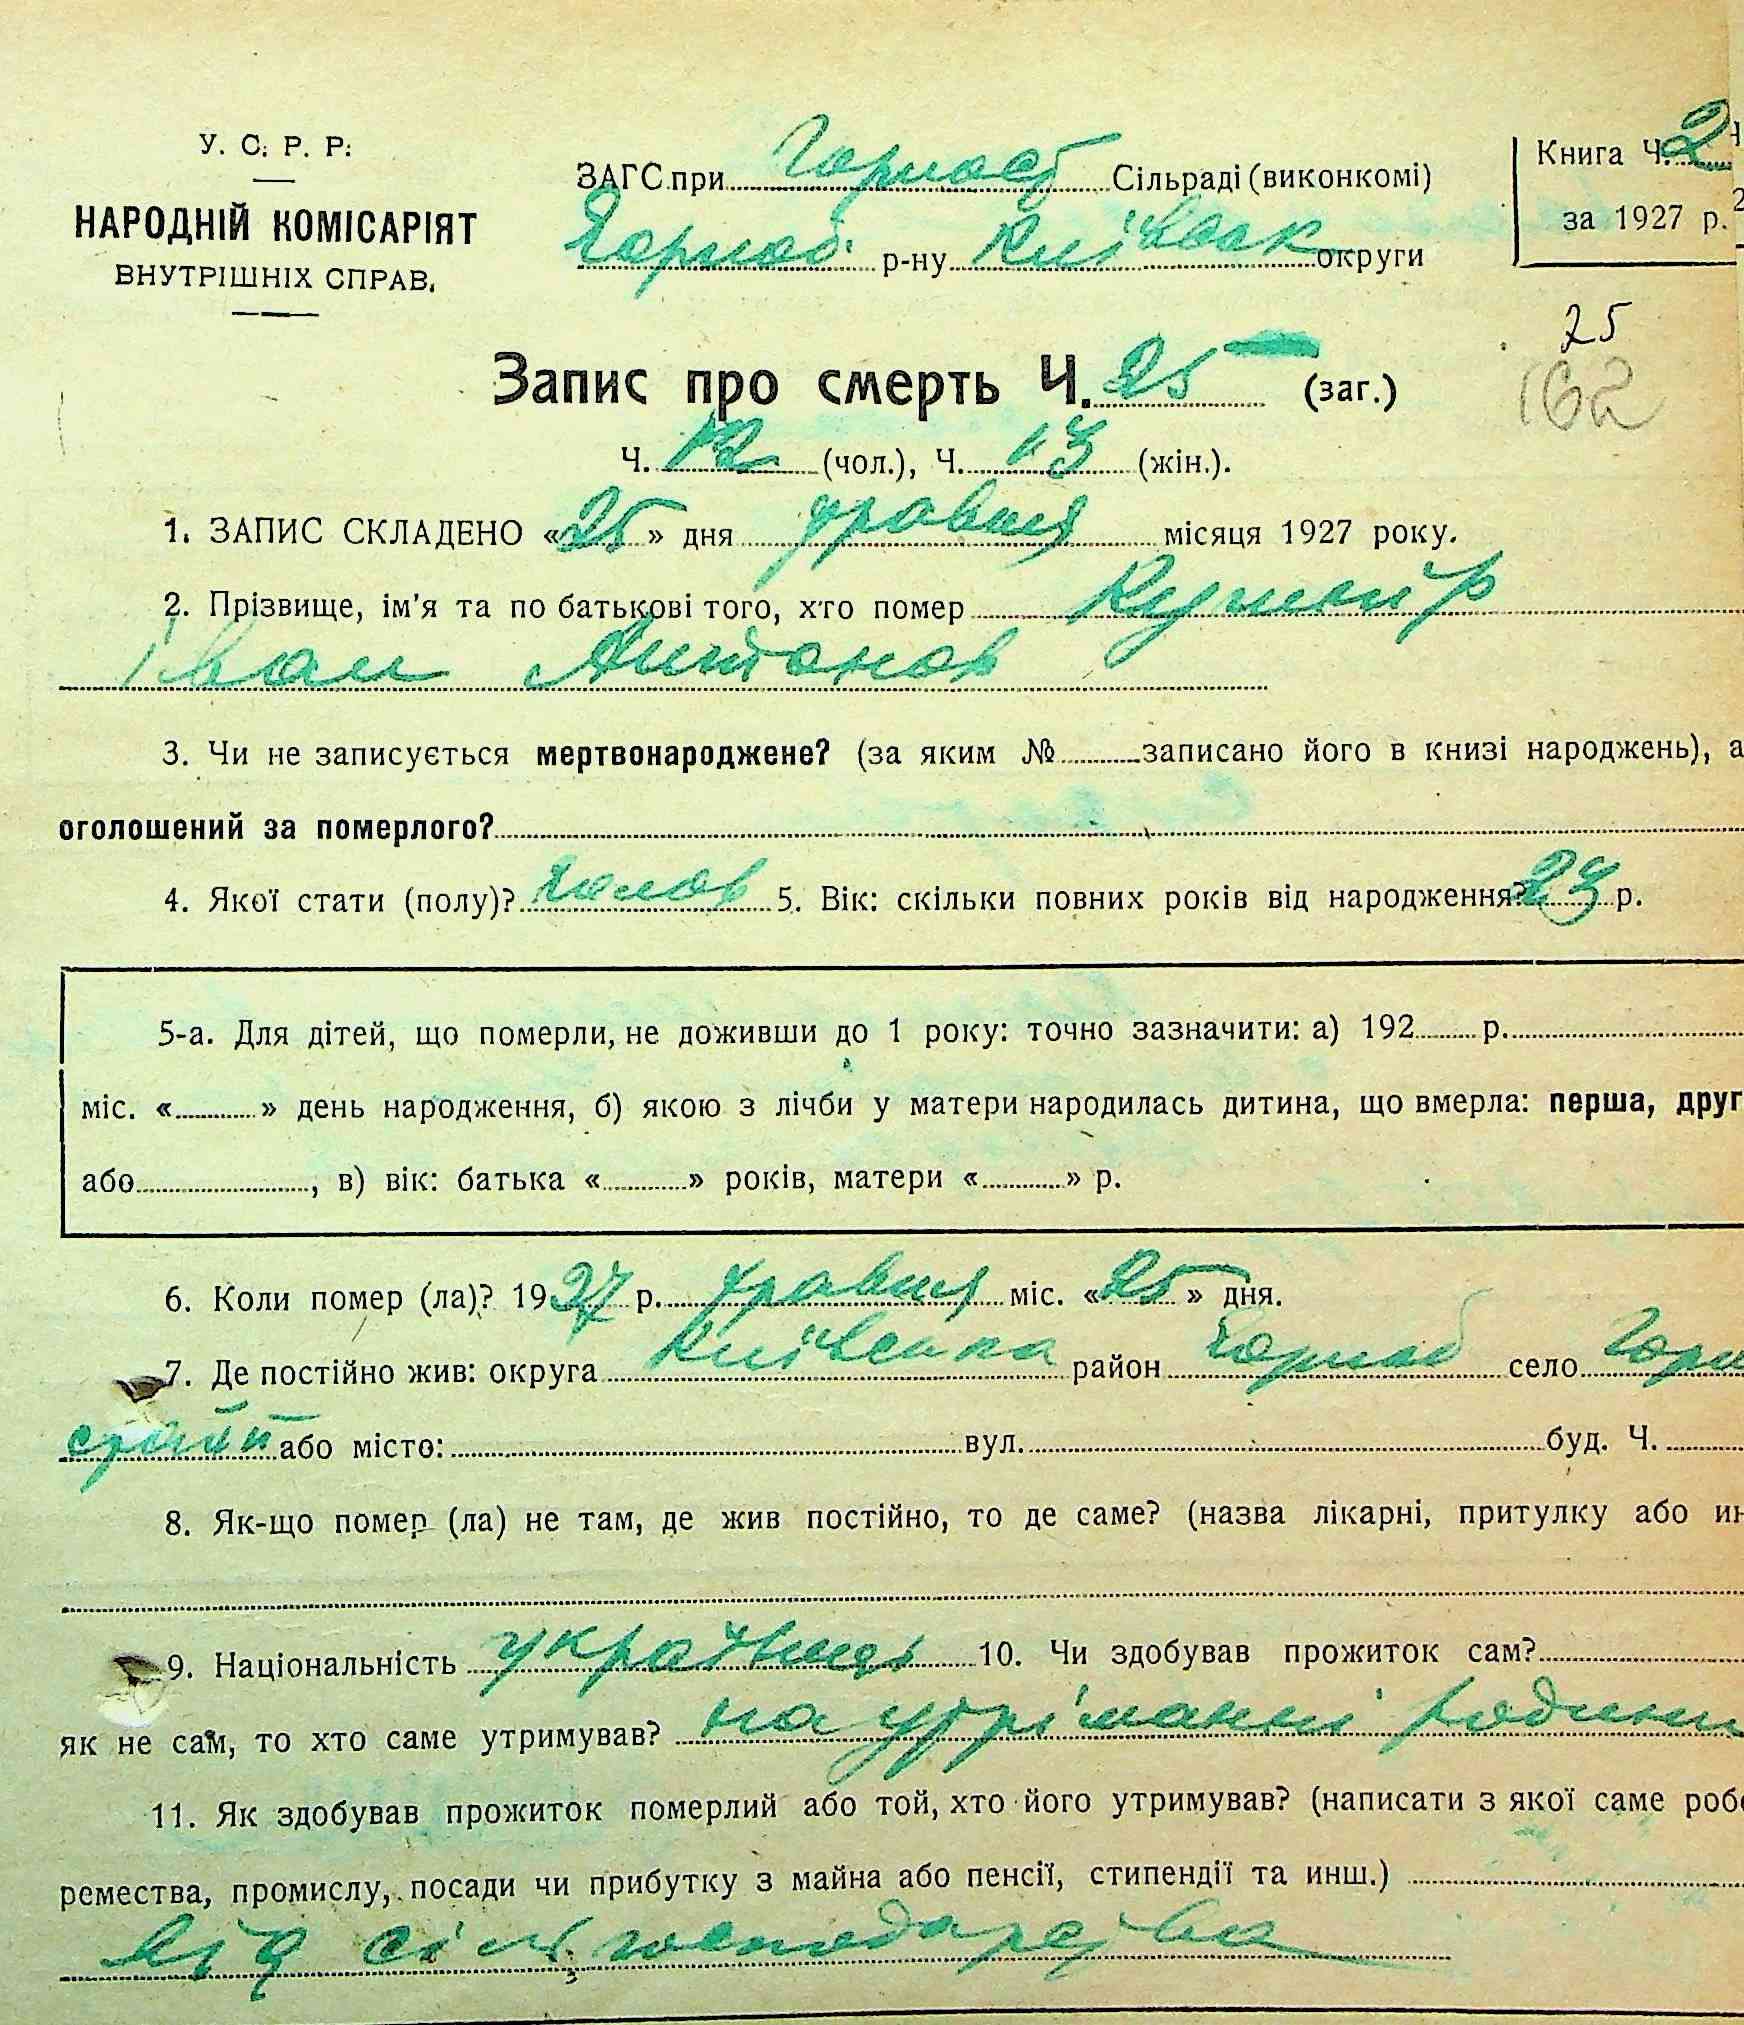 У. С. Р. Р.
НАРОДНІЙ КОМІСАРІЯТ
ВНУТРІШНІХ СПРАВ.
ЗАГС при Горност Сільраді (виконкомі)
р-ну Київськ округи
Книга Ч. 2
за 1927 р.
25
162
Запис про смерть Ч. 25 (заг.)
Ч. 12 (чол.), Ч. 13 (жін.).
1. ЗАПИС СКЛАДЕНО «25» дня травня місяця 1927 року.
2. Прізвище, ім'я та по батькові того, хто помер Кушнір
Іван Антонов
3. Чи не записується мертвонароджене? (за яким № записано його в книзі народжень), а
оголошений за померлого?
4. Якої стати (полу)? Чолов 5. Вік: скільки повних років від народження? р.
5-а. Для дітей, що померли, не доживши до 1 року: точно зазначити: а) 192 р.
міс. « » день народження, б) якою з лічби у матери народилась дитина, що вмерла: перша, друг
або , в) вік: батька « » років, матери « » р.
6. Коли помер (ла)? 1927 р. травня міс. «25» дня.
7. Де постійно жив: округа Київська район село Горно
або місто: вул. буд. Ч.
8. Як-що помер (ла) не там, де жив постійно, то де саме? (назва лікарні, притулку або ин
9. Національність українець 10. Чи здобував прожиток сам?
як не сам, то хто саме утримував? на утріманні родини
11. Як здобував прожиток померлий або той, хто його утримував? (написати з якої саме роб
ремества, промислу, посади чи прибутку з майна або пенсії, стипендії та инш.)
від сільгосподарства